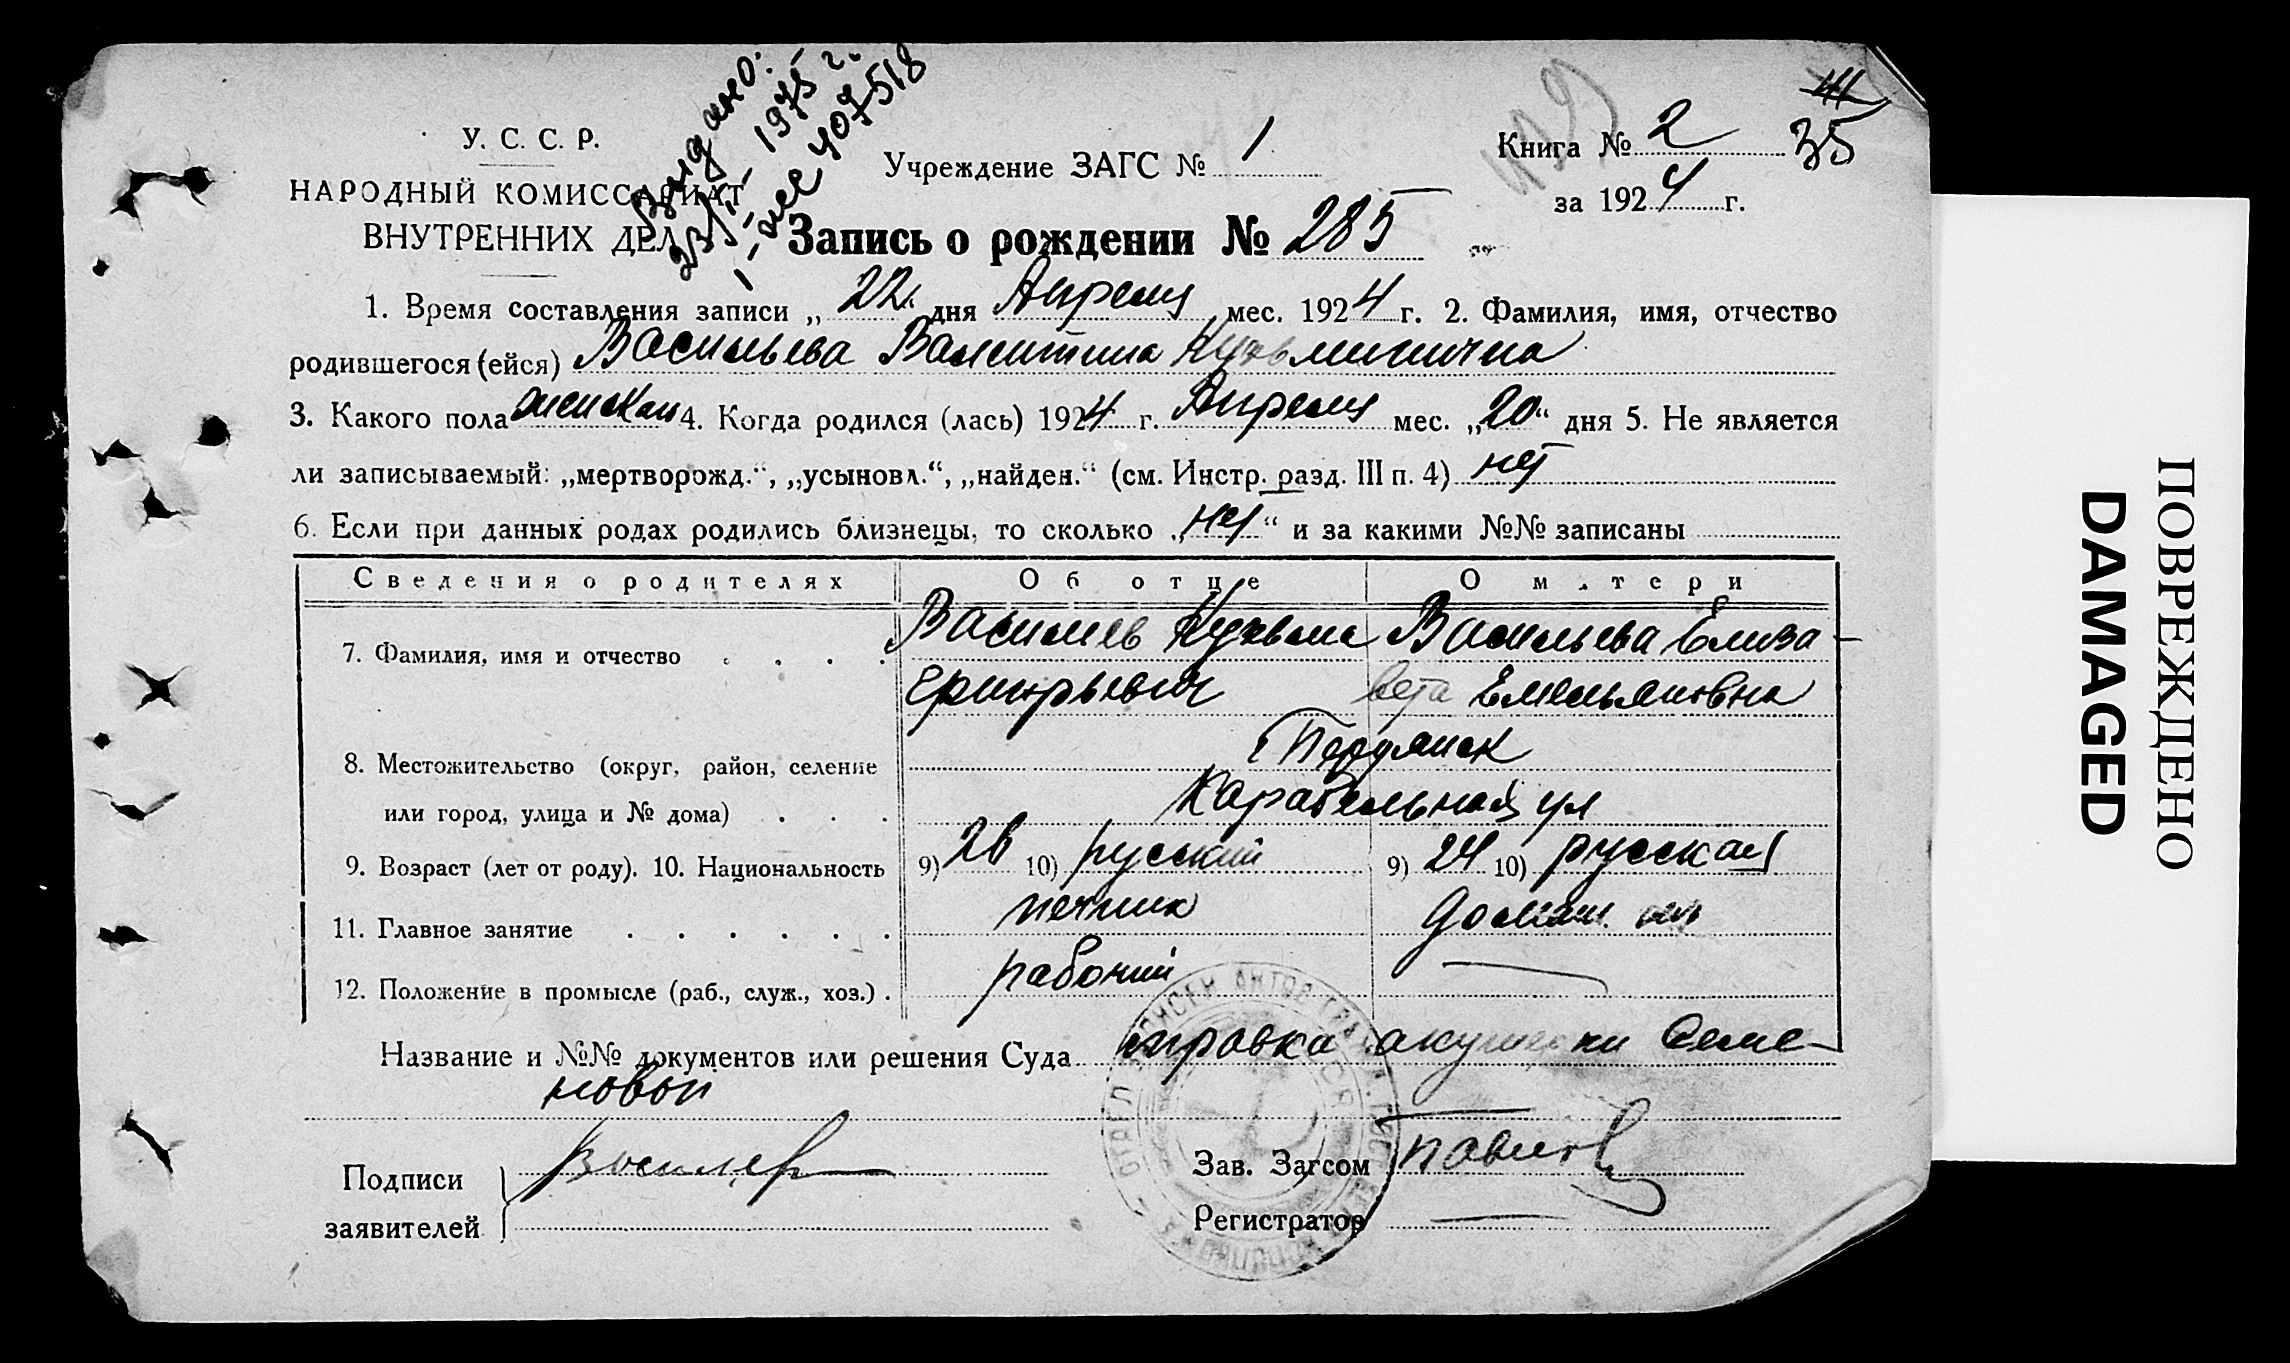 Выдано:
23/V- 1975 г.
Книга № 2
35
У. С. С. Р.
Учреждение ЗАГС № 1
за 1924 г.
НАРОДНЫЙ КОМИССАРИАТ
ВНУТРЕННИХ ДЕЛ
Запись о рождении № 285
1. Время составления записи „ 22 “ дня Апреля мес. 1924 г. 2. Фамилия, имя, отчество
родившегося (ейся) Васильева Валентина Кузьминична
3. Какого пола женская 4. Когда родился (лась) 1924 г. Апреля мес. „20“ дня 5. Не является
ли записываемый: „мертворожд.“, „усыновл.“, „найден.“ (см. Инстр. разд. III п. 4) нет
6. Если при данных родах родились близнецы, то сколько „нет“ и за какими №№ записаны
Сведения о родителях Об отце О матери
7. Фамилия, имя и отчество . . . . Васильев Кузьма Васильева Елиза-
Григорьевич вета Емельяновна
8. Местожительство (округ, район, селение
Бердянск
или город, улица и № дома) . . . Карабельная ул
9. Возраст (лет от роду). 10. Национальность 9) 26 10) русский 9) 24 10) русская
11. Главное занятие . . . . . . печник домаш.
12. Положение в промысле (раб., служ., хоз.) . рабочий —
Название и №№ документов или решения Суда справка акушерки Семе-
новой
Подписи
заявителей
Васильев
Зав. Загсом Павлов
Регистратор —
ПОВРЕЖДЕНО
DAMAGED